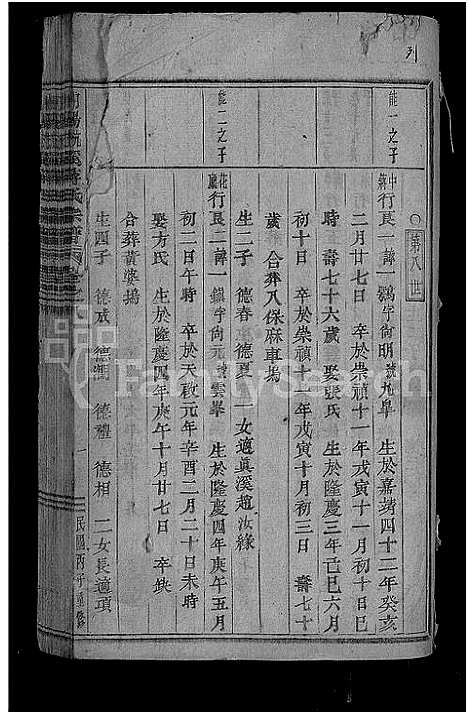 列
○第八世
能一之子
中蔣行良一諱一鶚字尙明號九皐 生於嘉靖四十二年癸亥
二月廿七日 卒於崇禎十一年戊寅十一月初十日巳
時 壽七十六歲 娶張氏 生於隆慶三年己巳六月
初十日 卒於崇禎十一年戊寅十月初三日 壽七十
歲 合葬八保麻車塢
生二子 德春 德夏 一女適眞溪趙汝緣
能二之子
花廳行良二諱一鎭字尙元號雲峯 生於隆慶四年庚午五月
初二日午時 卒於天啟元年辛酉二月二十日未時
娶方氏 生於隆慶四年庚午十月廿七日 卒缺
合葬黃婆塢
生四子 德威 德潤 德禮 德相 二女長適項
民國丙子重修
FamilySearch